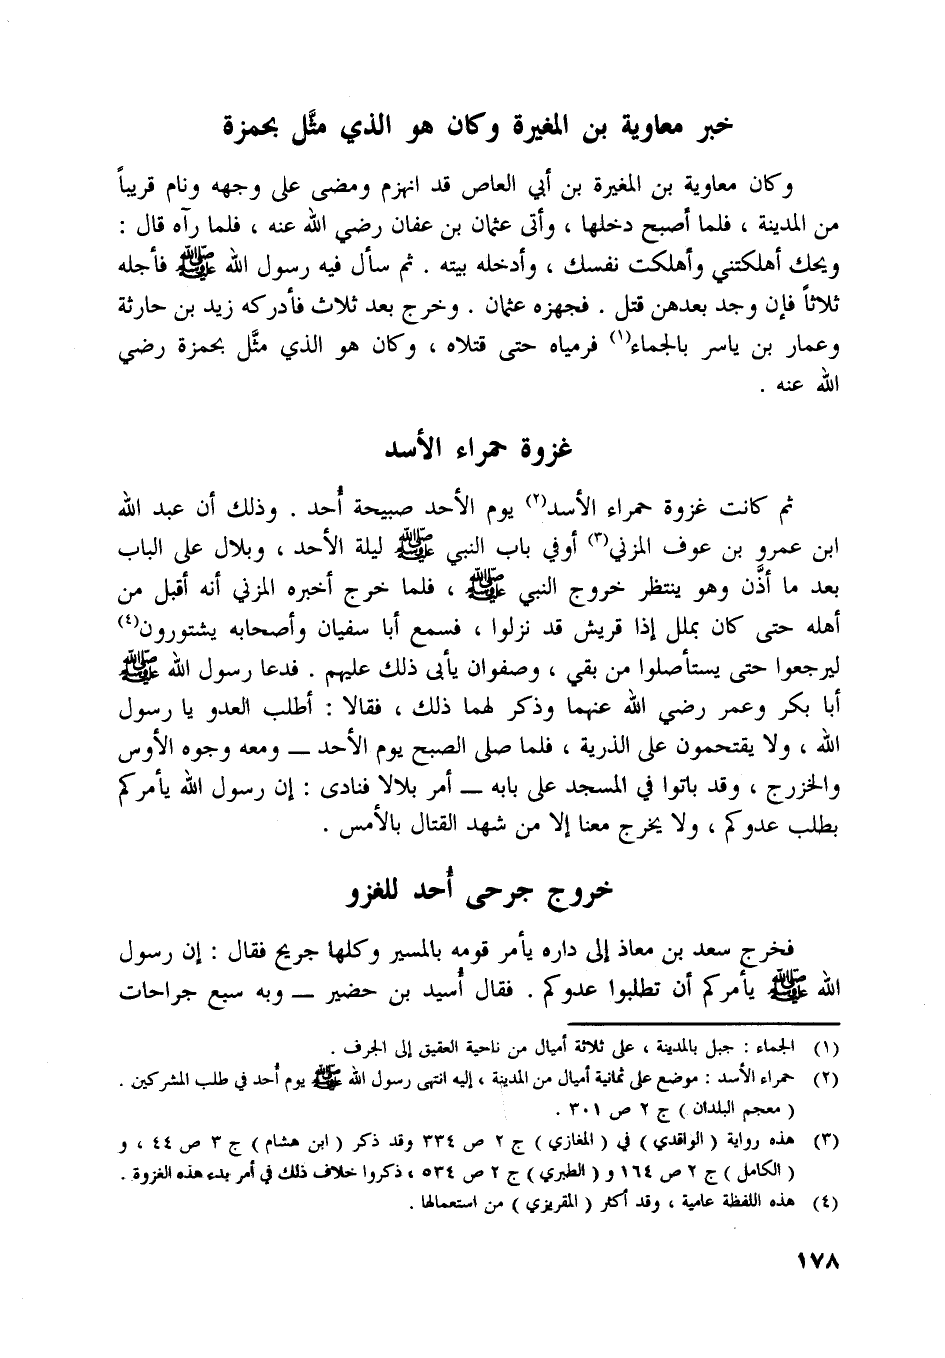 خبر معاوية بن المغيرة وكان هو الذي مثَّل بحمزة
وكان معاوية بن المغيرة بن أبي العاص قد انهزم ومضى على وجهه ونام قريباً
من المدينة ، فلما أصبح دخلها ، وأتى عثمان بن عفان رضي الله عنه ، فلما رآه قال :
ويحك أهلكتني وأهلكت نفسك ، وأدخله بيته . ثم سأل فيه رسول الله ﷺ فأجله
ثلاثاً فإن وجد بعدهن قتل . فجهزه عثمان . وخرج بعد ثلاث فأدركه زيد بن حارثة
وعمار بن ياسر بالجماء(١) فرمياه حتى قتلاه ، وكان هو الذي مثَّل بحمزة رضي
الله عنه .
غزوة حمراء الأسد
ثم كانت غزوة حمراء الأسد(٢) يوم الأحد صبيحة أُحد . وذلك أن عبد الله
ابن عمرو بن عوف المزني(٣) أوفي باب النبي ﷺ ليلة الأحد ، وبلال على الباب
بعد ما أذَّن وهو ينتظر خروج النبي ﷺ ، فلما خرج أخبره المزني أنه أقبل من
أهله حتى كان بملل إذا قريش قد نزلوا ، فسمع أبا سفيان وأصحابه يشتورون(٤)
ليرجعوا حتى يستأصلوا من بقي ، وصفوان يأبى ذلك عليهم . فدعا رسول الله ﷺ
أبا بكر وعمر رضي الله عنهما وذكر لهما ذلك ، فقالا : أطلب العدو يا رسول
الله ، ولا يقتحمون على الذرية ، فلما صلى الصبح يوم الأحد — ومعه وجوه الأوس
والخزرج ، وقد باتوا في المسجد على بابه — أمر بلالا فنادى : إن رسول الله يأمركم
بطلب عدوكم ، ولا يخرج معنا إلا من شهد القتال بالأمس .
خروج جرحى أُحد للغزو
فخرج سعد بن معاذ إلى داره يأمر قومه بالمسير وكلها جريح فقال : إن رسول
الله ﷺ يأمركم أن تطلبوا عدوكم . فقال أُسيد بن حضير — وبه سبع جراحات
(١) الجماء : جبل بالمدينة ، على ثلاثة أميال من ناحية العقيق إلى الجرف .
(٢) حمراء الأسد : موضع على ثمانية أميال من المدينة ، إليه انتهى رسول الله ﷺ يوم أُحد في طلب المشركين .
( معجم البلدان ) ج ٢ ص ٣٠١ .
(٣) هذه رواية ( الواقدي ) في ( المغازي ) ج ٢ ص ٣٣٤ وقد ذكر ( ابن هشام ) ج ٣ ص ٤٤ ، و
( الكامل ) ج ٢ ص ١٦٤ و ( الطبري ) ج ٢ ص ٥٣٤ ، ذكروا خلاف ذلك في أمر بدء هذه الغزوة .
(٤) هذه اللفظة عامية ، وقد أكثر ( المقريزي ) من استعمالها .
١٧٨